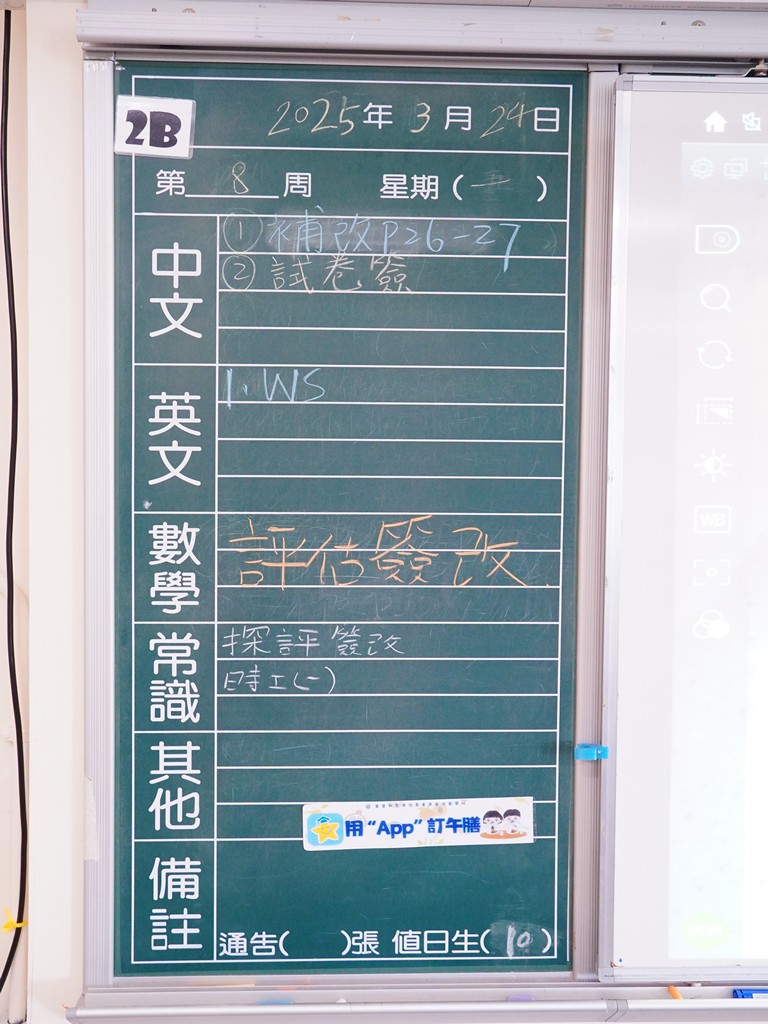 2B
2025年3月24日
第 8 周 星期(一)
中文
①補改P26-27
②試卷簽
英文
1. WS
數學
評估簽改
常識
探評簽改
時工(一)
其他
用“App”訂午膳
備註
通告( )張 值日生(10)
WB